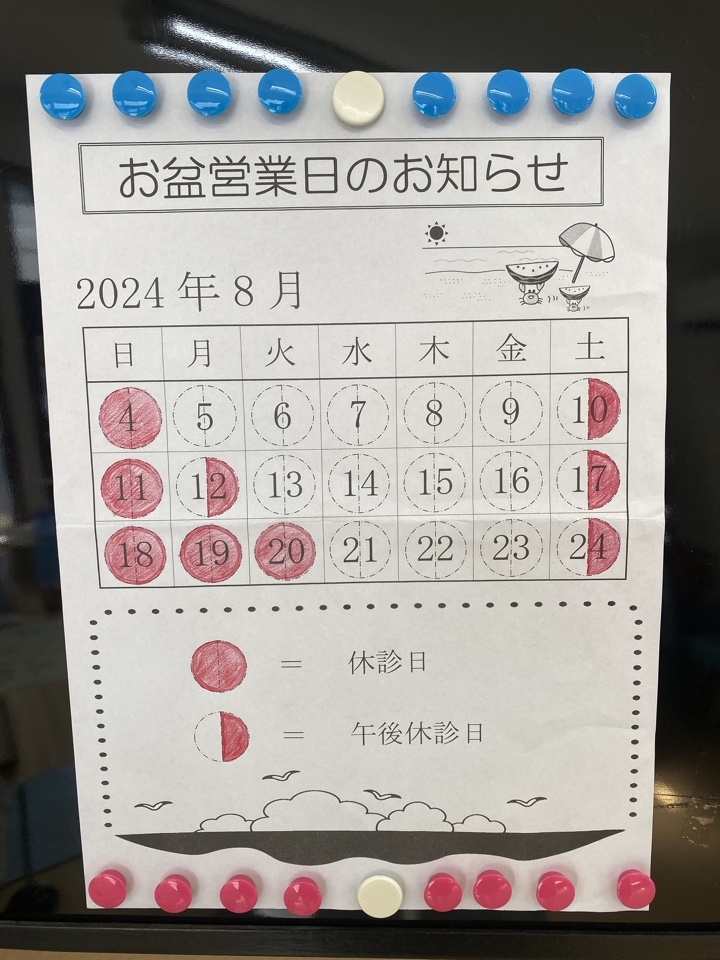 お盆営業日のお知らせ
2024年8月
日 月 火 水 木 金 土
4 5 6 7 8 9 10
11 12 13 14 15 16 17
18 19 20 21 22 23 24
= 休診日
= 午後休診日